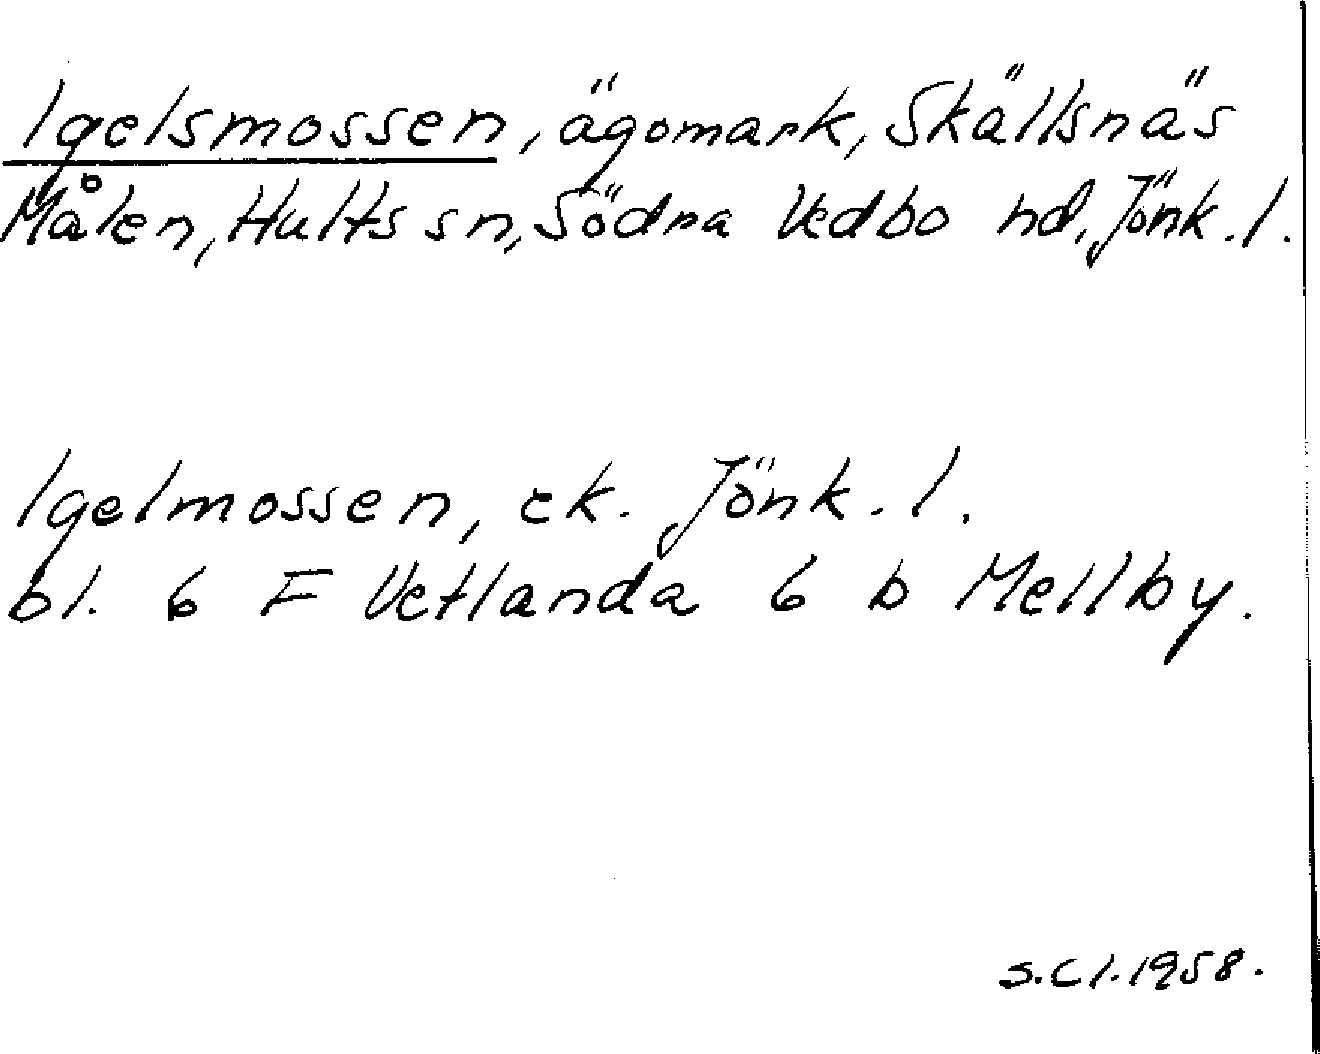 Igelsmossen, ägomark, Skällsnäs
Målen, Hults sn, Södra Vedbo hd, Jönk. l.
Igelmossen, ek. Jönk. l.
bl. 6 F Vetlanda 6 b Mellby.
s. C l. 1958.